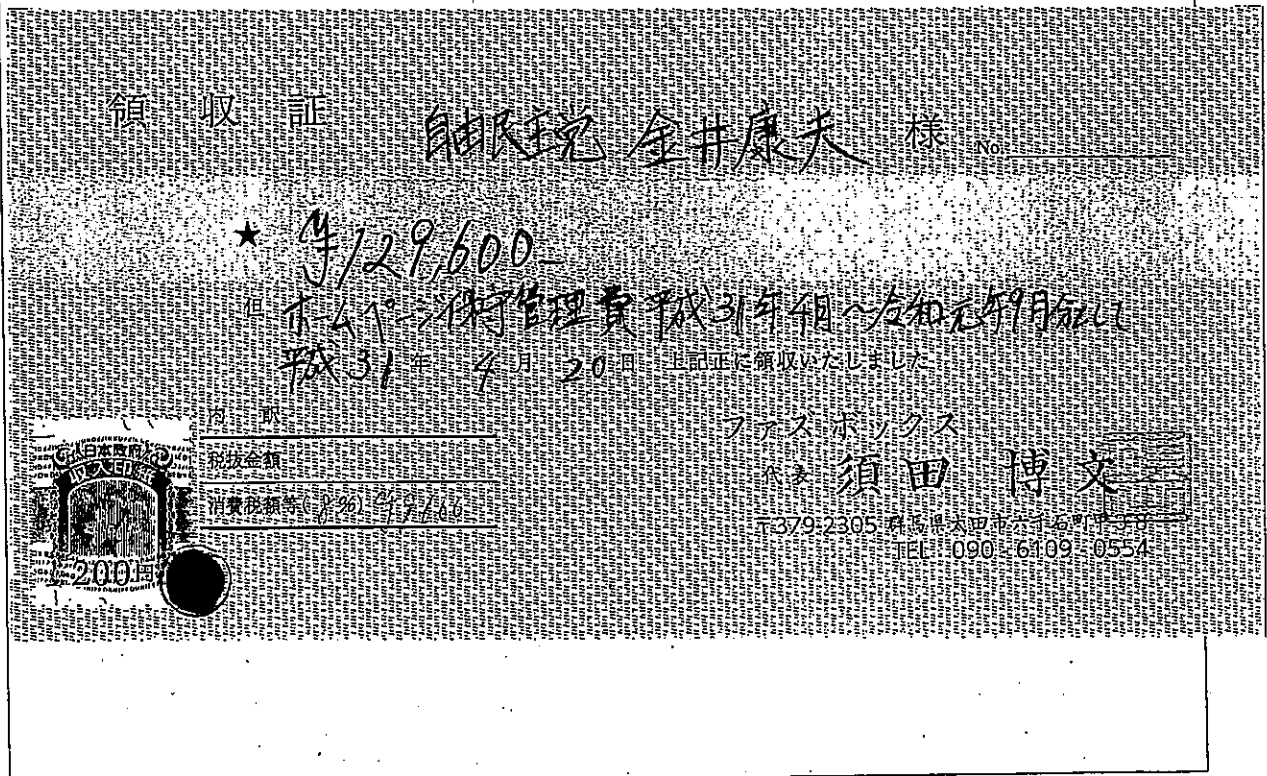 領収証 自由民主党 金井康夫 様 No.
★ ¥129,600-
但 ホームページ保守管理費 平成31年4月～令和元年9月分として
平成31年 4月 20日 上記正に領収いたしました
内訳
税抜金額
消費税額等(8%) ¥9,600
日本政府
収入印紙
200円
ファズボックス
代表 須田 博文
〒379-2305 群馬県太田市六千石町
TEL 090-6109-0554